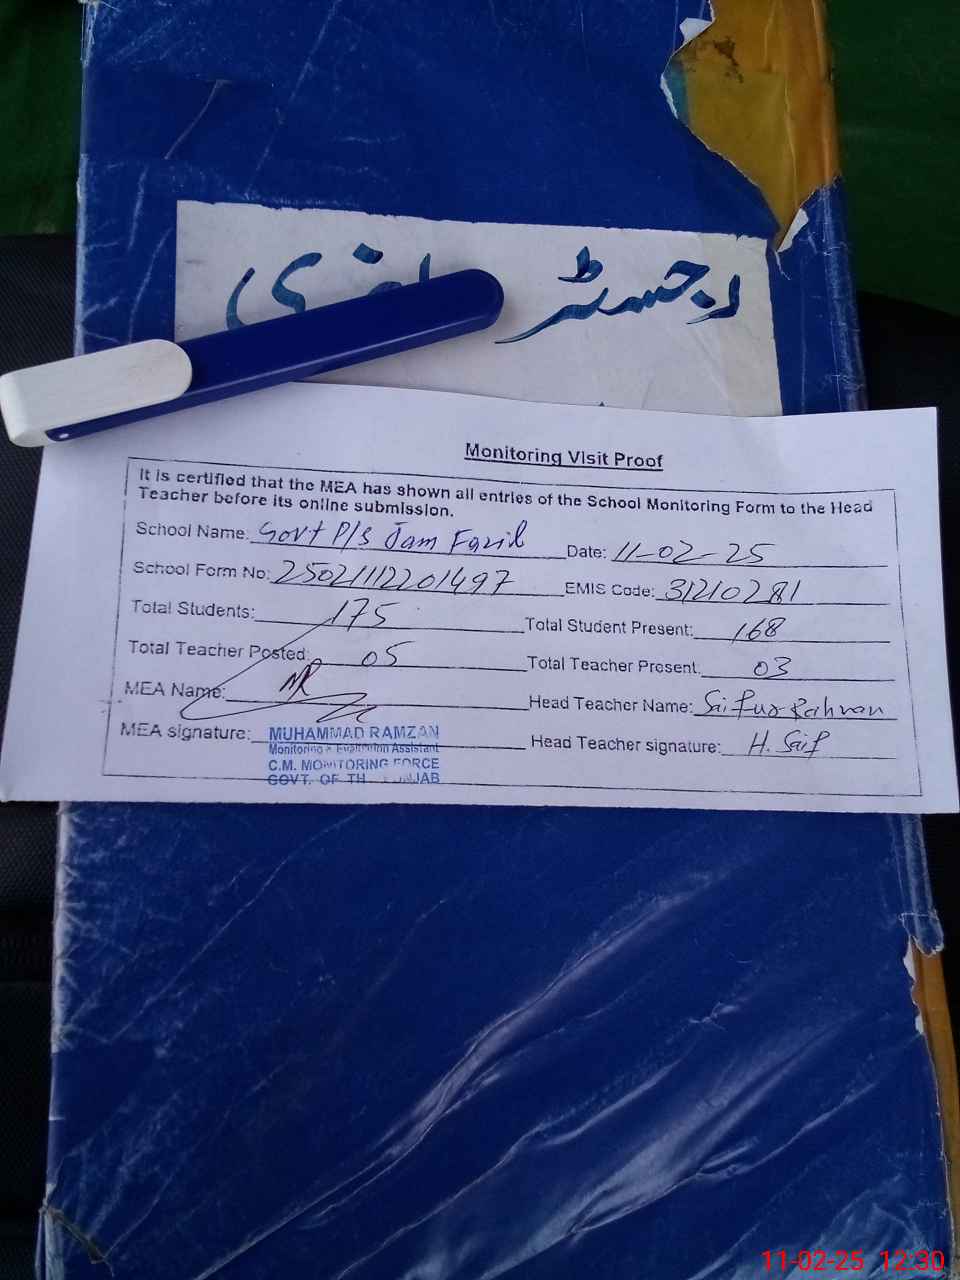 رجسٹر
Monitoring Visit Proof
It is certified that the MEA has shown all entries of the School Monitoring Form to the Head
Teacher before its online submission.
School Name: Govt P/s Jam Fazil Date: 11-02-25
School Form No: 25021112201497 EMIS Code: 31210281
Total Students: 175 Total Student Present: 168
Total Teacher Posted: 05 Total Teacher Present: 03
MEA Name: Head Teacher Name: Saifur Rahman
MEA signature: Head Teacher signature: H. Saif
MUHAMMAD RAMZAN
Monitoring & Evaluation Assistant
C.M. MONITORING FORCE
GOVT. OF
11-02-25 12:30